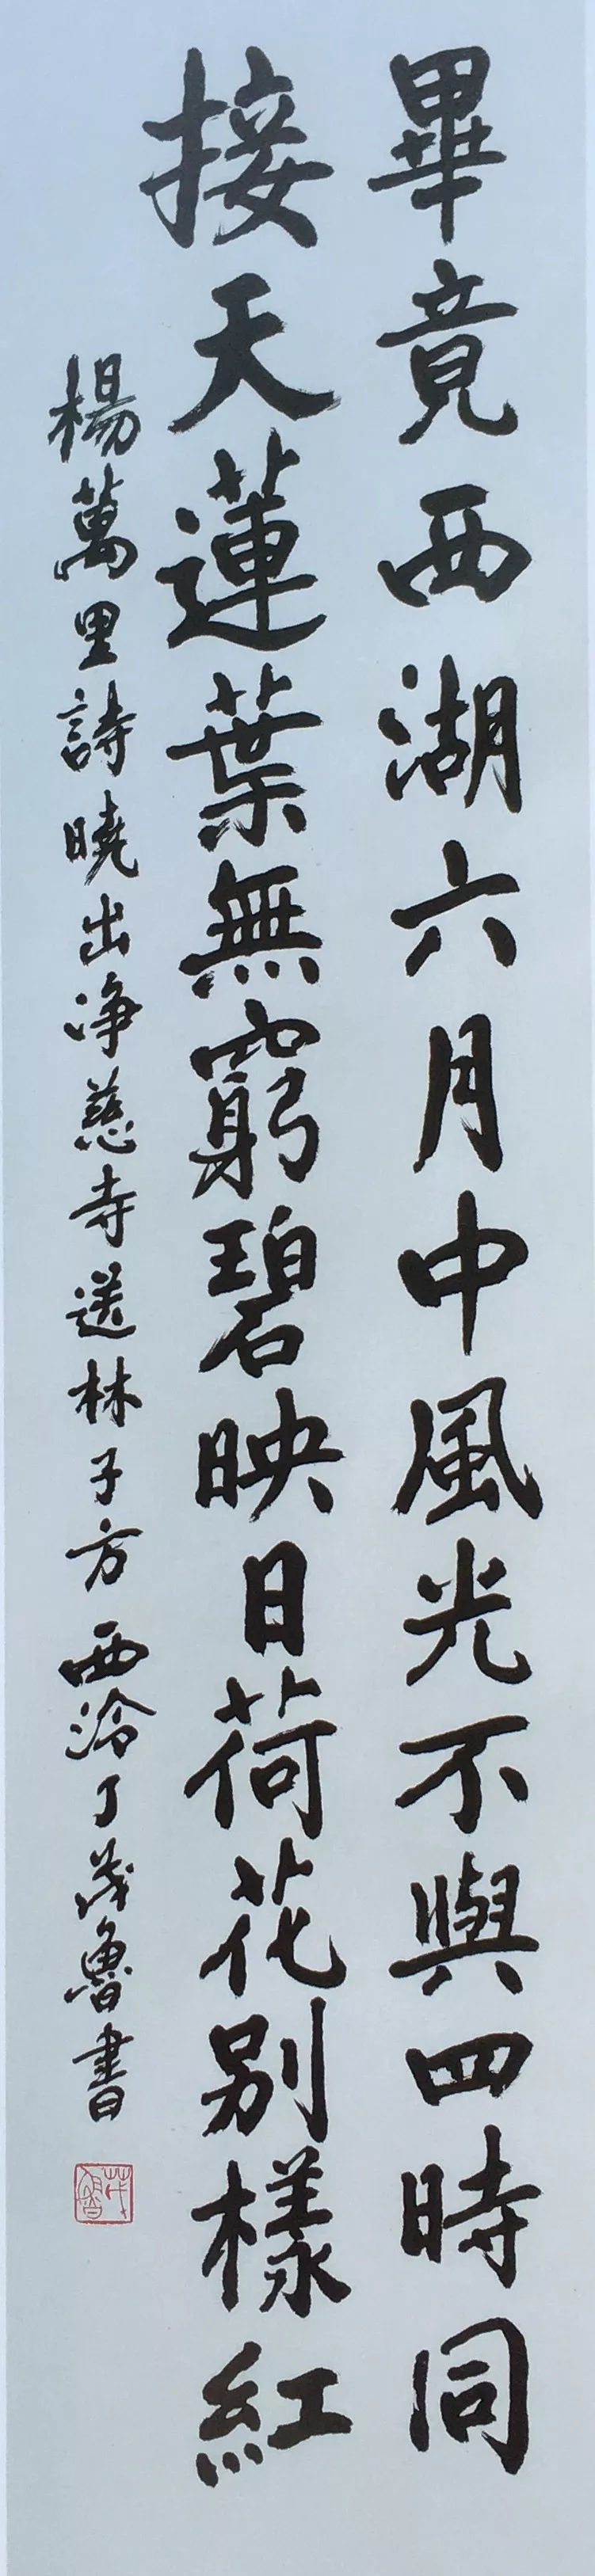 畢竟西湖六月中風光不與四時同
接天蓮葉無窮碧映日荷花別樣紅
楊萬里詩曉出淨慈寺送林子方 西泠丁茂魯書
茂魯